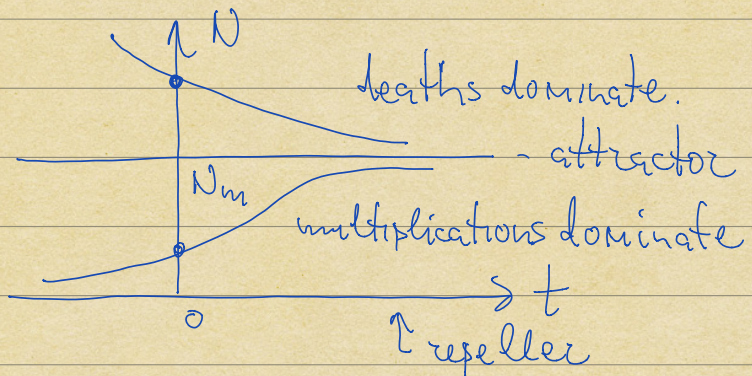 N
deaths dominate.
- attractor
Nm
multiplications dominate
t
0
repeller